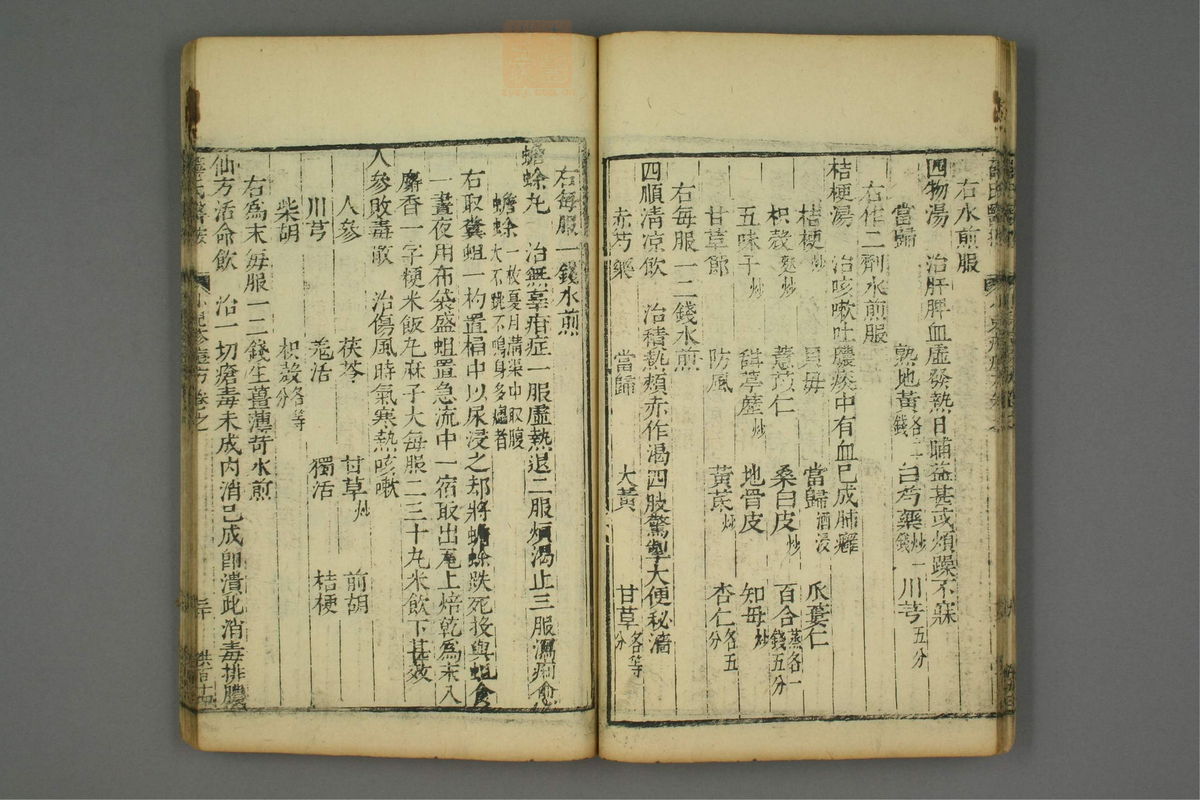 右水煎服
四物湯 治肝脾血虛發熱日晡益甚或煩躁不寐
當歸 熟地黃各二錢 白芍藥炒一錢 川芎五分
右作二劑水煎服
桔梗湯 治咳嗽吐膿痰中有血已成肺癰
桔梗炒 貝母 當歸酒浸 瓜蔞仁
枳殼麩炒 薏苡仁 桑白皮炒 百合蒸各一錢五分
五味子炒 葶藶炒 地骨皮 知母炒
甘草節 防風 黃芪炒 杏仁各五分
右每服一二錢水煎
四順清凉飲 治積熱頰赤作渴四肢驚掣大便秘濇
赤芍藥 當歸 大黃 甘草各等分
右每服一錢水煎
蟾蜍丸 治無辜疳症一服虛熱退二服煩渴止三服瀉痢愈
蟾蜍一枚夏月溝渠中取腹大不跳不鳴身多癩者
右取糞蛆一杓置桶中以尿浸之却將蟾蜍跌死投與蛆食
一晝夜用布袋盛蛆置急流中一宿取出瓦上焙乾爲末入
麝香一字粳米飯丸麻子大每服二三十丸米飲下甚效
人參敗毒散 治傷風時氣寒熱咳嗽
人參 茯苓 甘草炒 前胡
川芎 羗活 獨活 桔梗
柴胡 枳殼各等分
右爲末每服一二錢生薑薄荷水煎
仙方活命飲 治一切瘡毒未成內消已成卽潰此消毒排膿